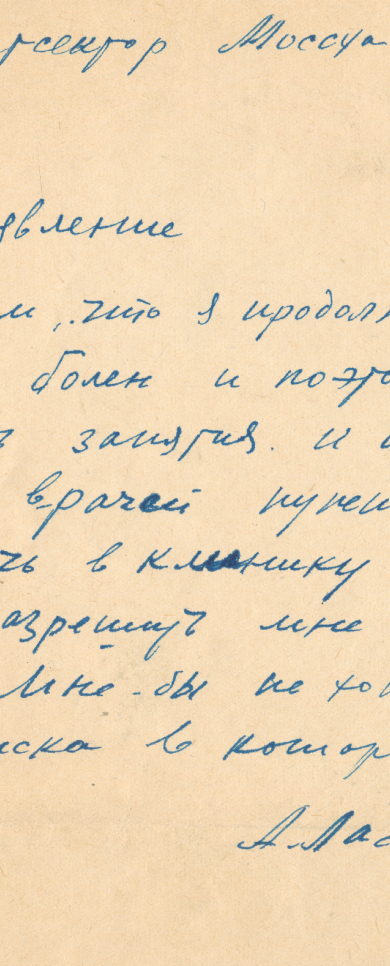 тсектор Моссха
явление
м, что я продолж
болен и поэт
ь занятия. и
врачей нужен
чь в клинику
азрешить мне
Мне-бы не хот
иска в котор
А. Лас